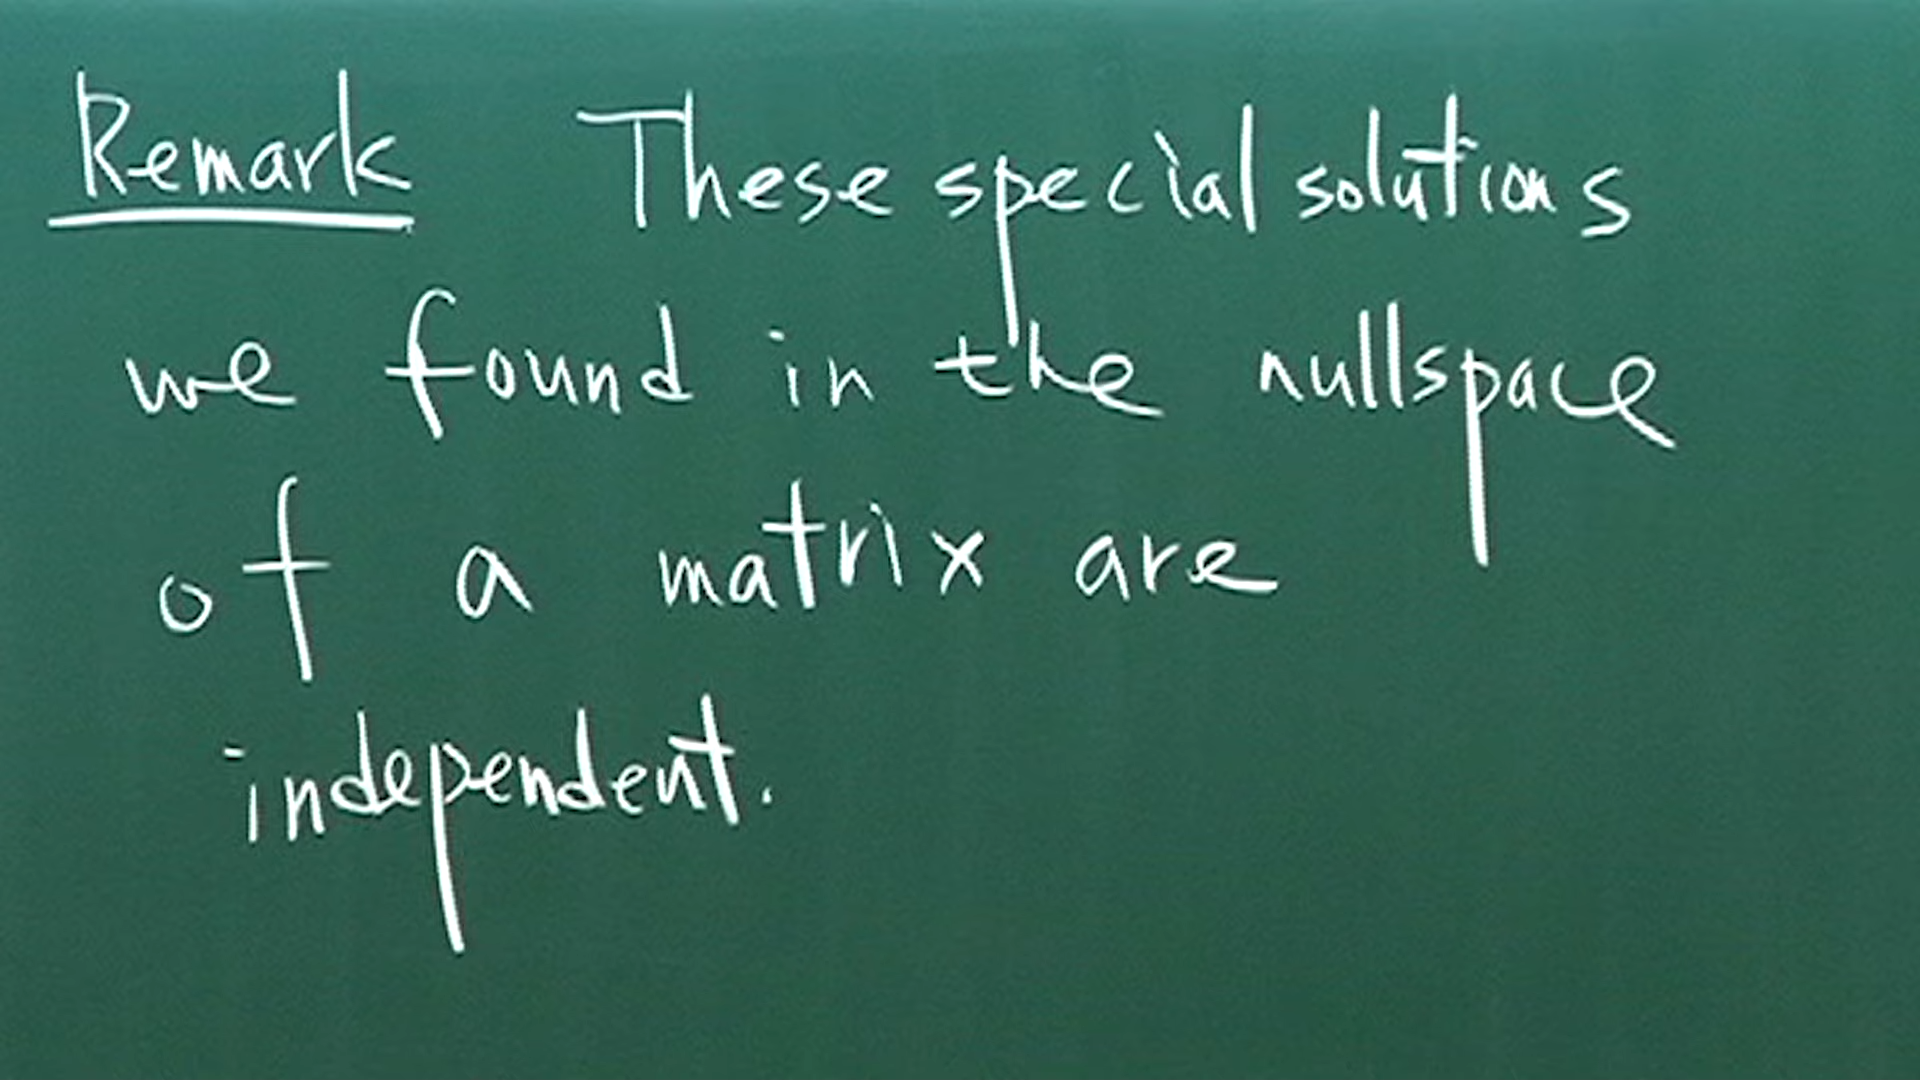 Remark These special solutions
we found in the nullspace
of a matrix are
independent.